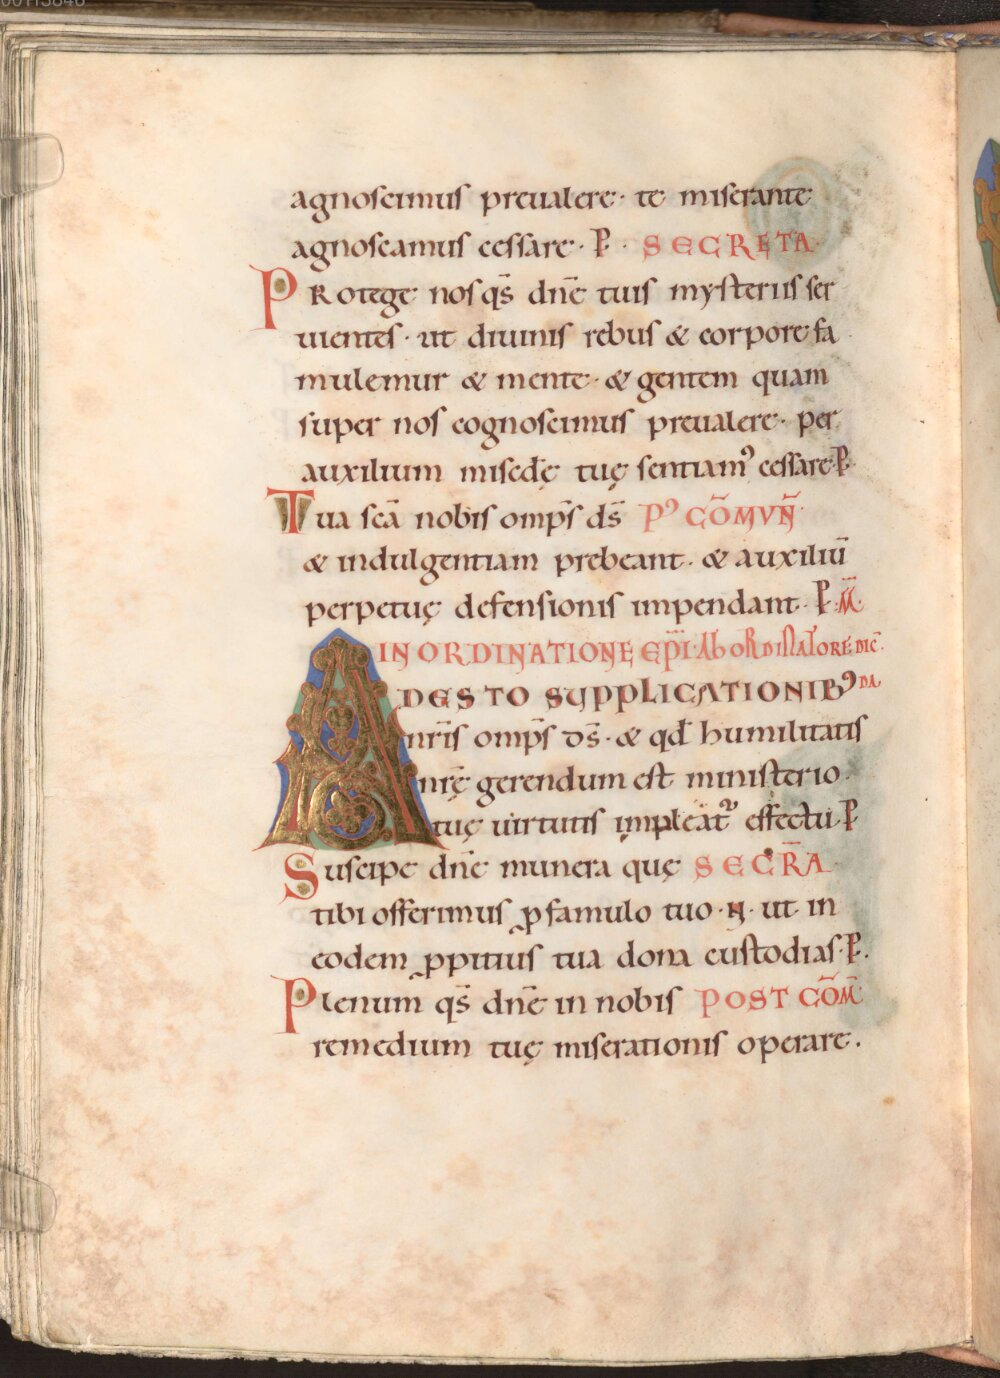 agnoscimus preualere· te miserante
agnoscamus cessare· P · SECRETA·
PRotege nos qs̄ dn̄e tuis mysteriis ser
uientes· ut diuinis rebus & corpore fa
mulemur & mente· & gentem quam
super nos cognoscimus preualere· per
auxilium misedę̄ tuę sentiamꝰ cessare P·
Tua scā nobis omp̄s ds̄ Pꝰ CŌMVÑ
& indulgentiam prebeant· & auxiliū
perpetuę defensionis impendant· P· M̄·
IN ORDINATIONE EP̄I· AB ORDINATORE· DIC̄·
ADESTO SUPPLICATIONIBꝰ DA
nr̄is omp̄s ds̄· & qd̄ humilitatis
nrę̄ gerendum est ministerio·
tuę uirtutis impleat᷑ effectu· P
Suscipe dn̄e munera quę SECR̄A
tibi offerimus ꝓ famulo tuo· N· ut in
eodem ꝓpitius tua dona custodias· P·
Plenum qs̄ dn̄e in nobis POST CŌM̄
remedium tuę miserationis operare·